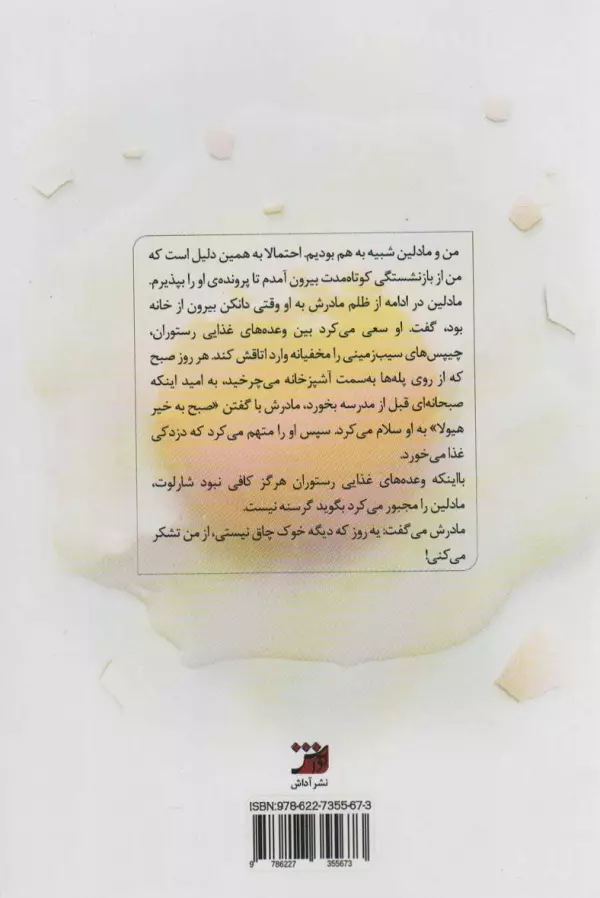 من و مادلین شبیه به هم بودیم. احتمالا به همین دلیل است که
من از بازنشستگی کوتاه‌مدت بیرون آمدم تا پرونده‌ی او را بپذیرم.
مادلین در ادامه از ظلم مادرش به او وقتی دانکن بیرون از خانه
بود، گفت. او سعی می‌کرد بین وعده‌های غذایی رستوران،
چیپس‌های سیب‌زمینی را مخفیانه وارد اتاقش کند. هر روز صبح
که از روی پله‌ها به‌سمت آشپزخانه می‌چرخید، به امید اینکه
صبحانه‌ای قبل از مدرسه بخورد، مادرش با گفتن «صبح به خیر
هیولا» به او سلام می‌کرد. سپس او را متهم می‌کرد که دزدکی
غذا می‌خورد.
بااینکه وعده‌های غذایی رستوران هرگز کافی نبود شارلوت،
مادلین را مجبور می‌کرد بگوید گرسنه نیست.
مادرش می‌گفت: یه روز که دیگه خوک چاق نیستی، از من تشکر
می‌کنی!
نشر آداش
ISBN:978-622-7355-67-3
9 786227 355673